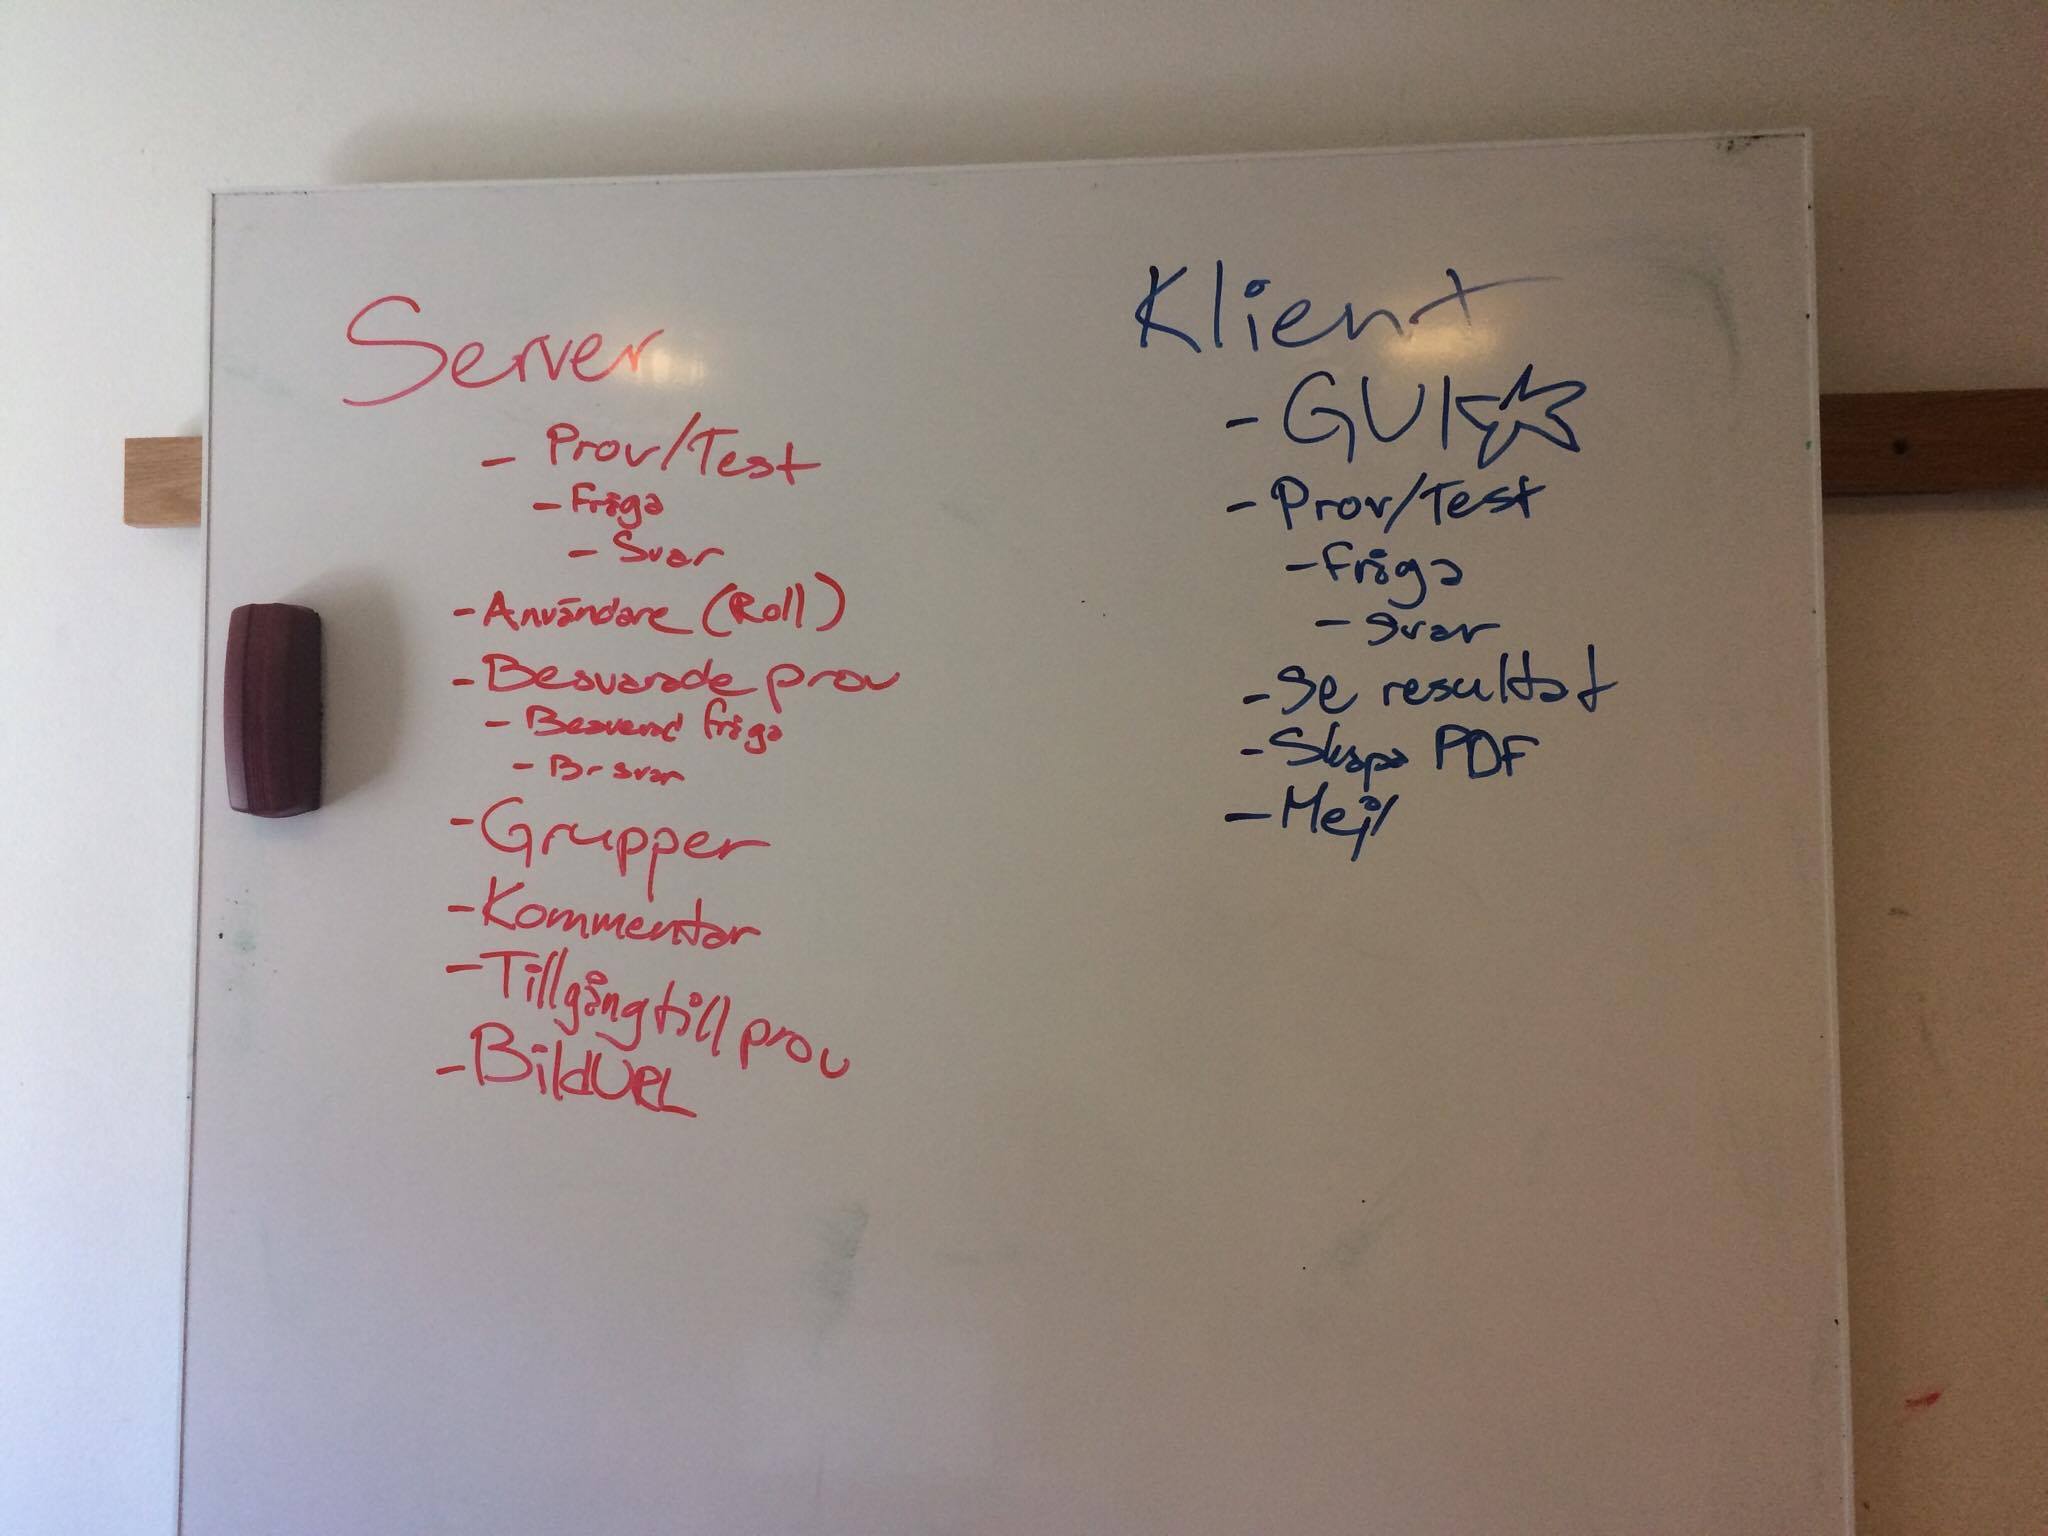 Server
- Prov/Test
- Fråga
- Svar
- Användare (Roll)
- Besvarade prov
- Besvarad fråga
- Br svar
- Grupper
- Kommentar
- Tillgång till prov
- BildURL
Klient
- GUI
- Prov/Test
- Fråga
- Svar
- Se resultat
- Skapa PDF
- Mejl